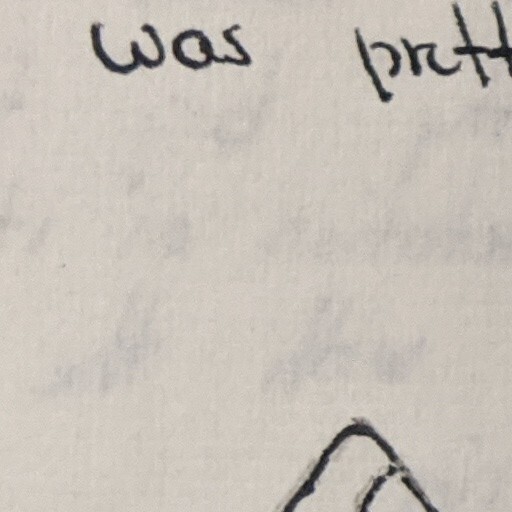 was prett